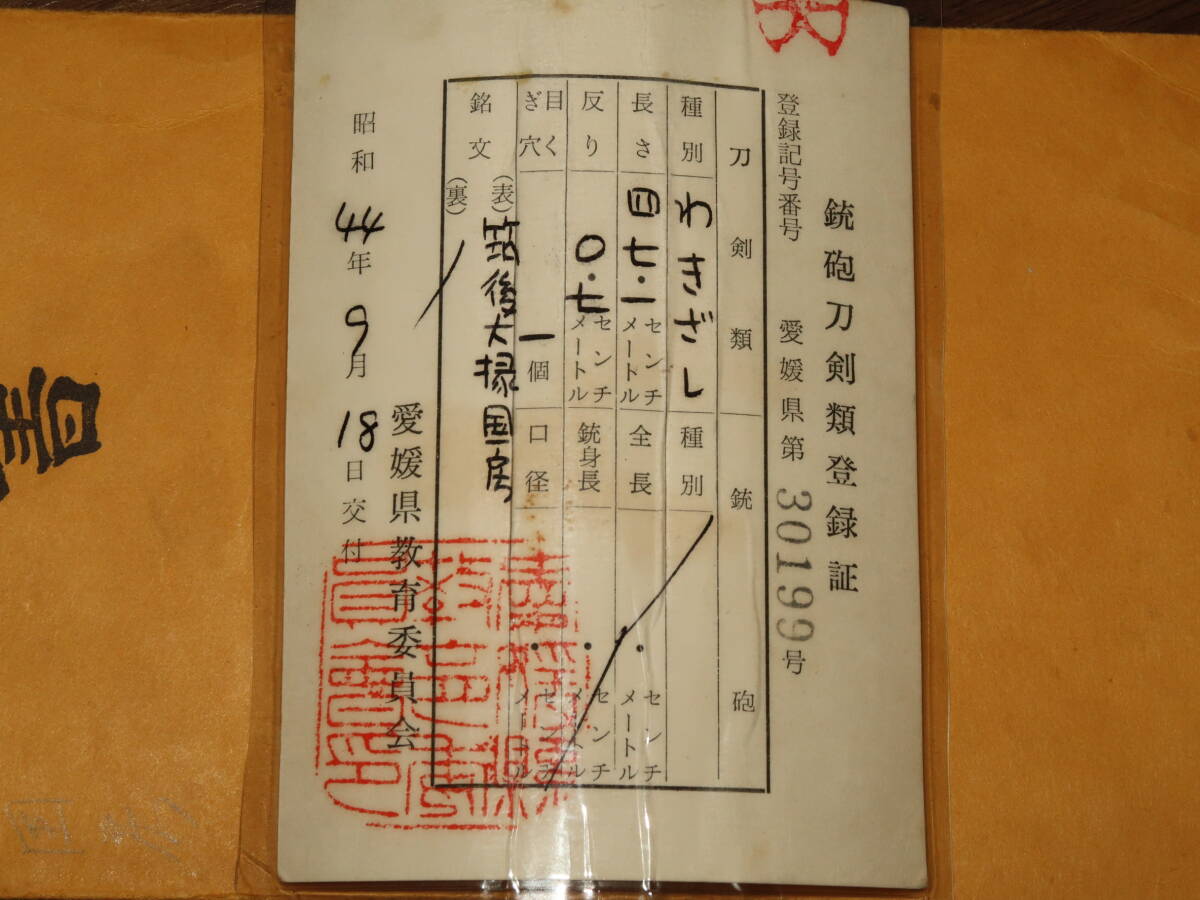 銃砲刀剣類登録証
登録記号番号 愛媛県第30199号
刀剣類 銃砲
種別 わきざし 種別
長さ 四七・一センチメートル 全長 ・センチメートル
反り 〇・七センチメートル 銃身長 ・センチメートル
目くぎ穴 一個 口径 ・センチメートル
銘文 (表)筑後大掾国房
(裏)
愛媛県教育委員会
昭和44年9月18日交付